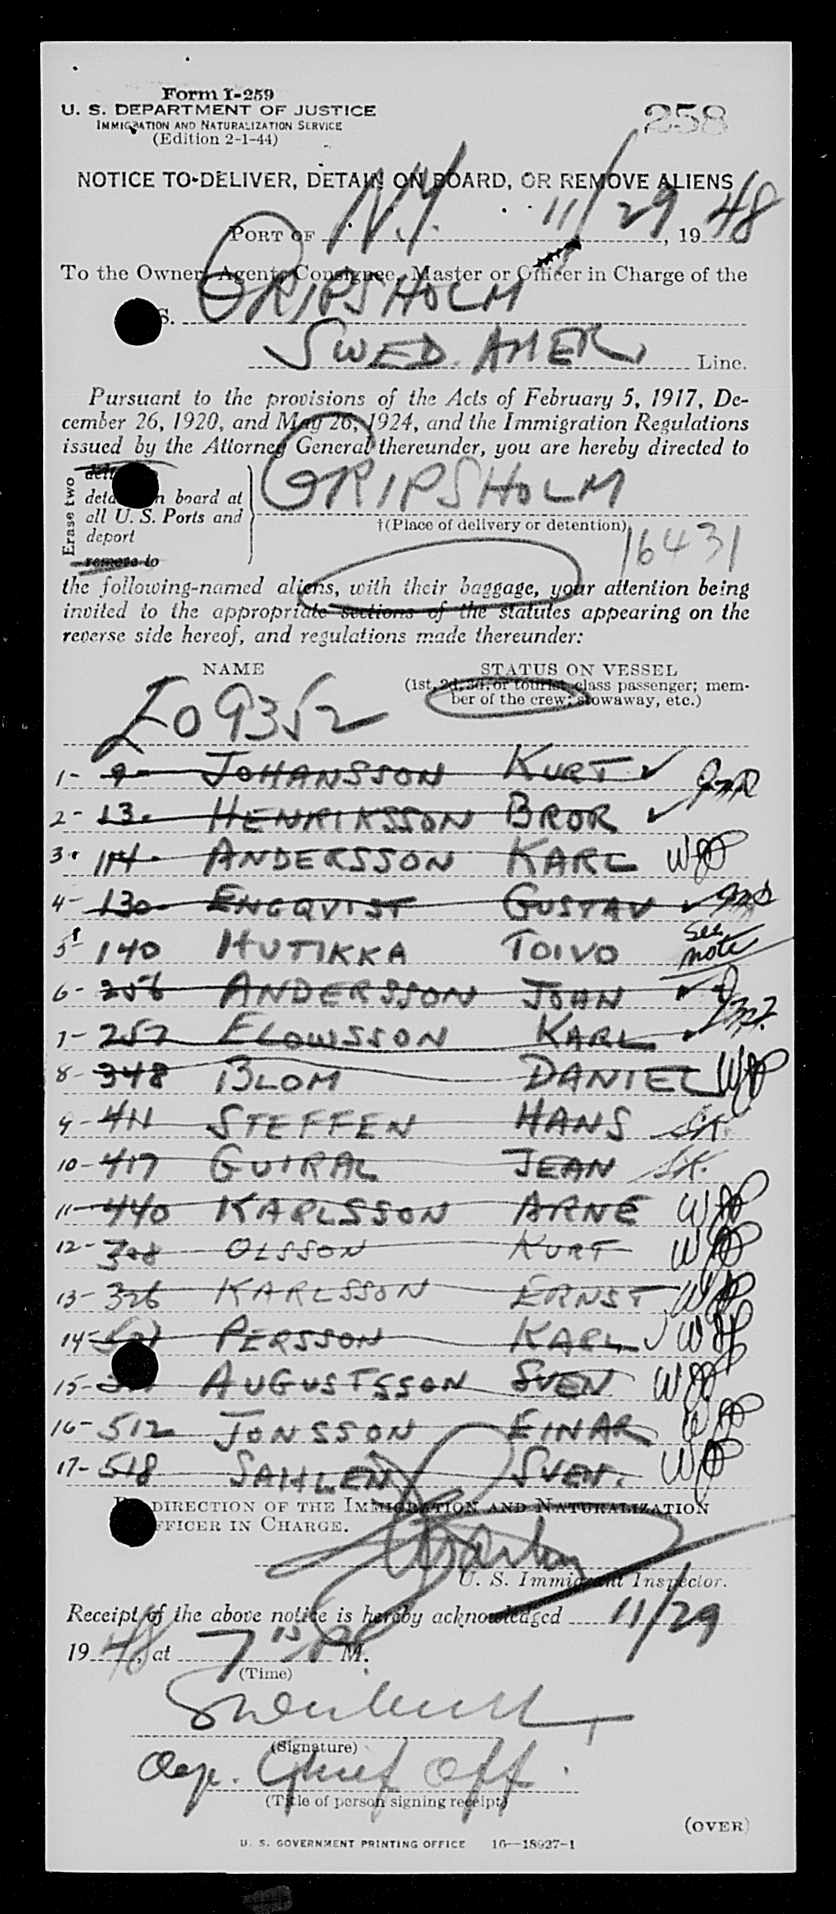 Form I-259
U. S. DEPARTMENT OF JUSTICE
IMMIGRATION AND NATURALIZATION SERVICE
(Edition 2-1-44)
258
NOTICE TO DELIVER, DETAIN ON BOARD, OR REMOVE ALIENS
PORT OF N.Y. 11/29, 1948
To the Owner, Agent, Consignee, Master or Officer in Charge of the
S. GRIPSHOLM
SWED. AMER. Line.
Pursuant to the provisions of the Acts of February 5, 1917, De-
cember 26, 1920, and May 26, 1924, and the Immigration Regulations
issued by the Attorney General thereunder, you are hereby directed to
Erase two
detain on board at
all U. S. Ports and
deport
remove to
GRIPSHOLM
†(Place of delivery or detention)
16431
the following-named aliens, with their baggage, your attention being
invited to the appropriate sections of the statutes appearing on the
reverse side hereof, and regulations made thereunder:
NAME STATUS ON VESSEL
(1st, 2d, 3d, or tourist class passenger; mem-
ber of the crew; stowaway, etc.)
I09352
1- 9- JOHANSSON KURT ✓
2- 13. HENRIKSSON BROR ✓
3- 114- ANDERSSON KARL WJP
4- 130- ENGQVIST GUSTAV ✓
5- 140 HUTIKKA TOIVO See note
6- 256 ANDERSSON JOHN ✓
7- 257 ELOWSSON KARL ✓
8- 348 BLOM DANIEL WJP
9- 411 STEFFEN HANS SK.
10- 417 GUIRAL JEAN SK.
11- 440 KARLSSON ARNE WJP
12- 308 OLSSON KURT WJP
13- 326 KARLSSON ERNST WJP
14- PERSSON KARL ✓ WJP
15- AUGUSTSSON SVEN WJP
16- 512 JONSSON EINAR WJP
17- 518 SAHLEN SVEN. WJP
BY DIRECTION OF THE IMMIGRATION AND NATURALIZATION
OFFICER IN CHARGE.
U. S. Immigrant Inspector.
Receipt of the above notice is hereby acknowledged 11/29
1948, at 7 15 P M.
(Time)
(Signature)
Dep. Chief Off.
(Title of person signing receipt)
(OVER)
U. S. GOVERNMENT PRINTING OFFICE 16—18927-1